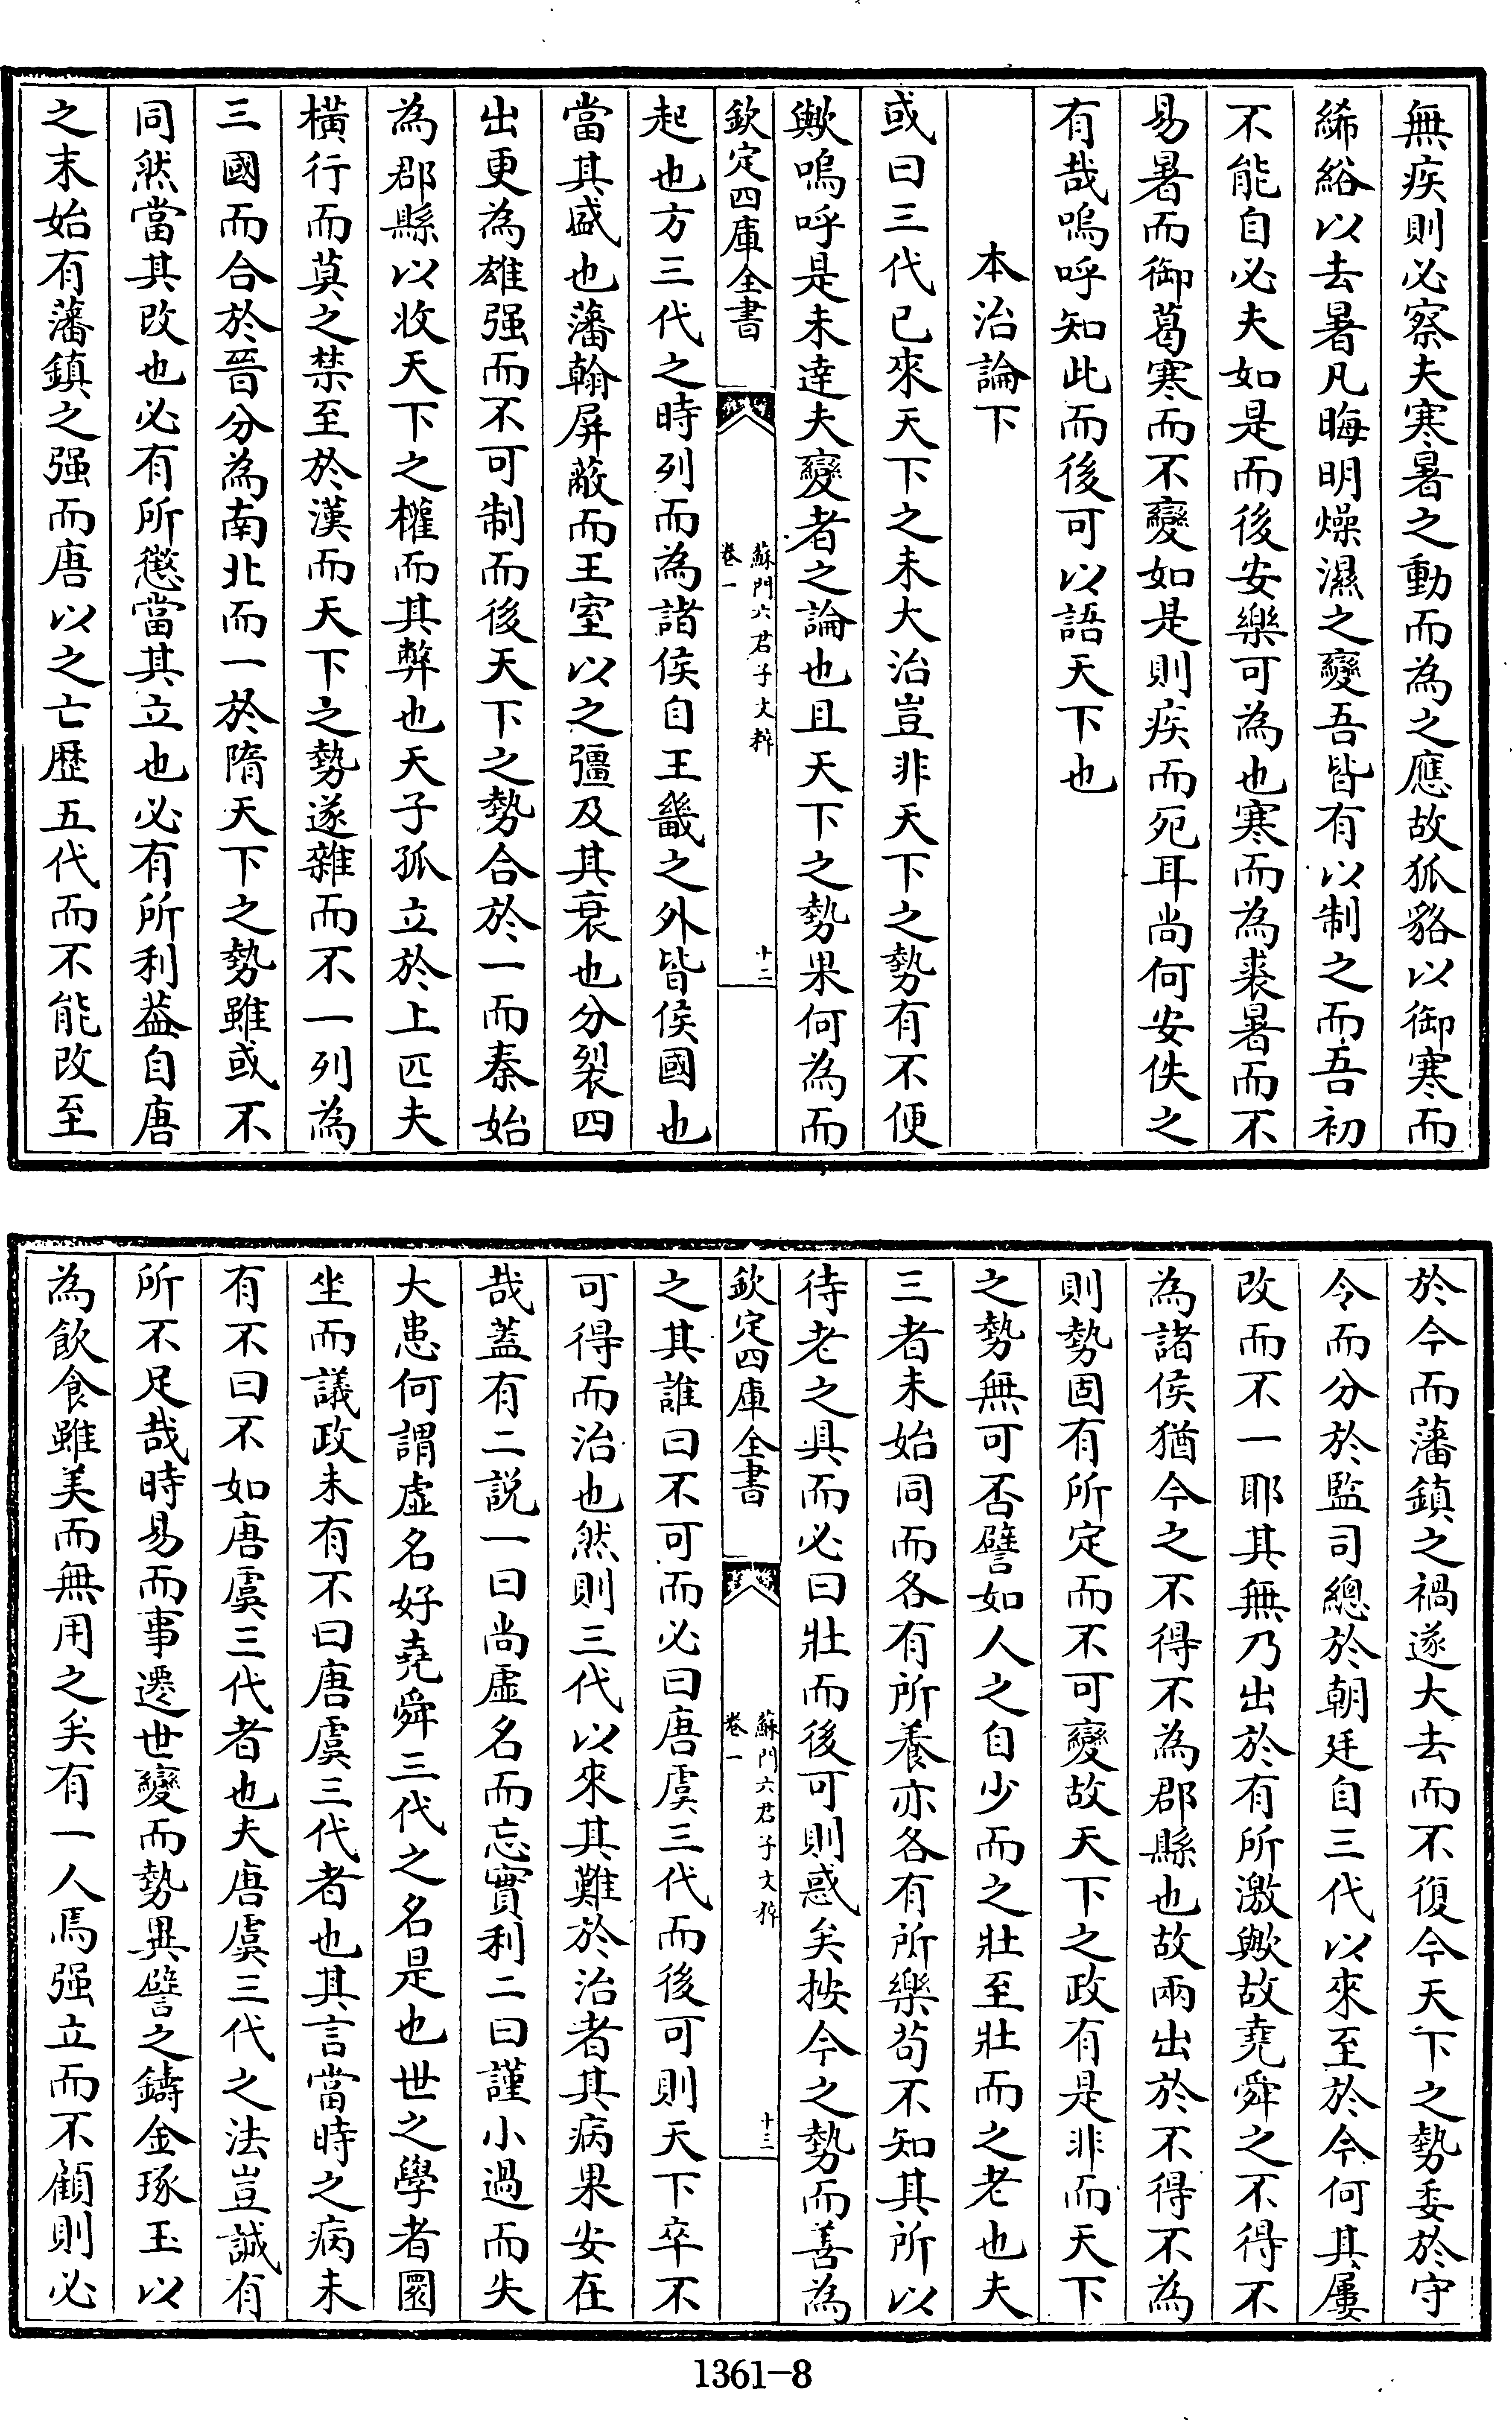 無疾則必察夫寒暑之動而為之應故狐貉以御寒而
絺綌以去暑凡晦明燥濕之變吾皆有以制之而吾初
不能自必夫如是而後安樂可為也寒而為裘暑而不
易暑而御葛寒而不變如是則疾而死耳尚何安佚之
有哉嗚呼知此而後可以語天下也
本治論下
或曰三代已來天下之未大治豈非天下之勢有不便
歟嗚呼是未達夫變者之論也且天下之勢果何為而
欽定四庫全書
蘇門六君子文粹
卷一
十二
起也方三代之時列而為諸侯自王畿之外皆侯國也
當其盛也藩翰屏蔽而王室以之彊及其衰也分裂四
出更為雄强而不可制而後天下之勢合於一而秦始
為郡縣以收天下之權而其弊也天子孤立於上匹夫
橫行而莫之禁至於漢而天下之勢遂雜而不一列為
三國而合於晉分為南北而一於隋天下之勢雖或不
同然當其改也必有所懲當其立也必有所利葢自唐
之末始有藩鎮之强而唐以之亡歴五代而不能改至
於今而藩鎮之禍遂大去而不復今天下之勢委於守
令而分於監司總於朝廷自三代以來至於今何其屢
改而不一耶其無乃出於有所激歟故堯舜之不得不
為諸侯猶今之不得不為郡縣也故兩出於不得不為
則勢固有所定而不可變故天下之政有是非而天下
之勢無可否譬如人之自少而之壯至壯而之老也夫
三者未始同而各有所養亦各有所樂苟不知其所以
待老之具而必曰壯而後可則惑矣按今之勢而善為
欽定四庫全書
蘇門六君子文粹
卷一
十三
之其誰曰不可而必曰唐虞三代而後可則天下卒不
可得而治也然則三代以來其難於治者其病果安在
哉蓋有二説一曰尚虛名而忘實利二曰謹小過而失
大患何謂虛名好堯舜三代之名是也世之學者圜
坐而議政未有不曰唐虞三代者也其言當時之病未
有不曰不如唐虞三代者也夫唐虞三代之法豈誠有
所不足哉時易而事遷世變而勢異譬之鑄金琢玉以
為飲食雖美而無用之矣有一人焉强立而不顧則必
1361-8